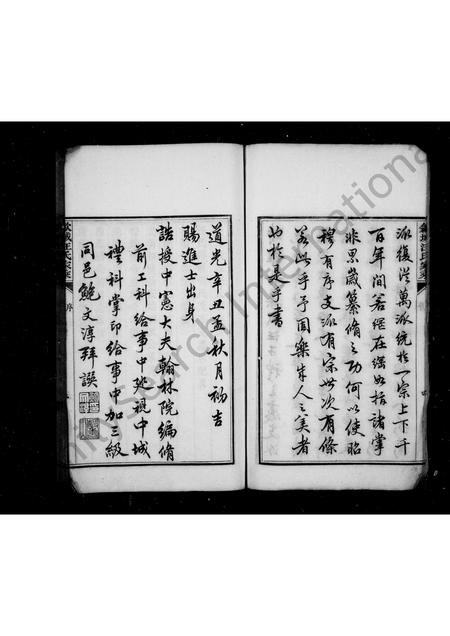 派復從萬派統於一宗上下千
百年間若網在綱如指諸掌
非累歲纂脩之功何以使昭
穆有序支派有宗世次有條
若此乎予固樂成人之美者
也於是乎書
道光辛丑孟秋月初吉
賜進士出身
誥授中憲大夫翰林院編脩
前工科給事中巡視中城
禮科掌印給事中加三級
同邑鮑文淳拜譔
序
FamilySearch International